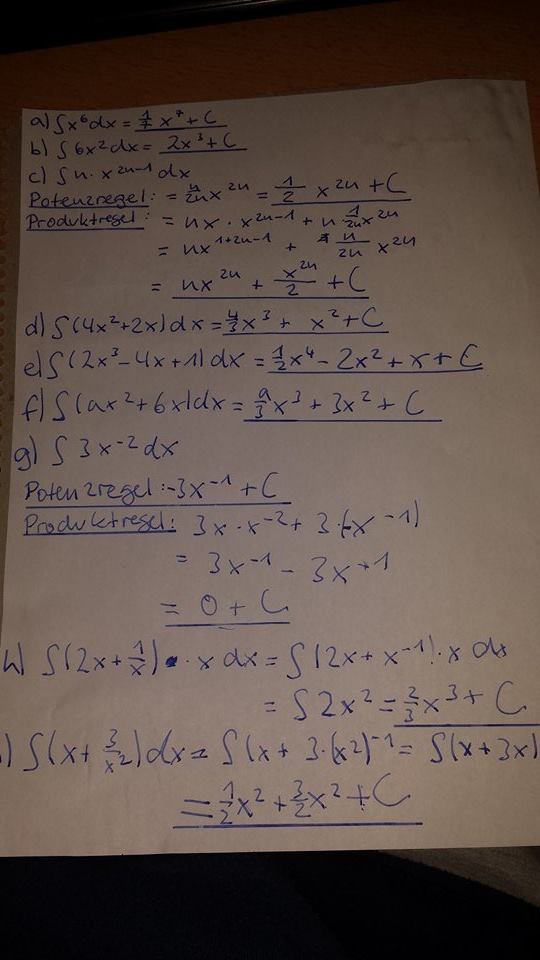 a) ∫x⁶dx = 1/7 x⁷ + C
b) ∫6x²dx = 2x³ + C
c) ∫n·x²ⁿ⁻¹dx
Potenzregel: = n/2n x²ⁿ = 1/2 x²ⁿ + C
Produktregel: = nx · x²ⁿ⁻¹ + n·1/2n x²ⁿ
= nx¹⁺²ⁿ⁻¹ + n/2n x²ⁿ
= nx²ⁿ + x²ⁿ/2 + C
d) ∫(4x²+2x)dx = 4/3x³ + x² + C
e) ∫(2x³-4x+1)dx = 1/2x⁴ - 2x² + x + C
f) ∫(ax²+6x)dx = a/3x³ + 3x² + C
g) ∫3x⁻²dx
Potenzregel: -3x⁻¹ + C
Produktregel: 3x·x⁻² + 3·(-x⁻¹)
= 3x⁻¹ - 3x⁺¹
= 0 + C
h) ∫(2x + 1/x) · x dx = ∫(2x + x⁻¹)·x dx
= ∫2x² = 2/3x³ + C
) ∫(x + 3/x²)dx = ∫(x + 3·(x²)⁻¹ = ∫(x + 3x)
= 1/2x² + 3/2x² + C